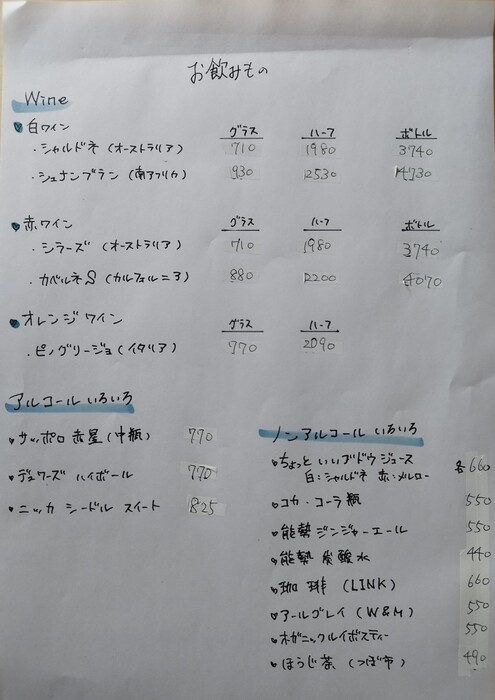 お飲みもの
Wine
白ワイン グラス ハーフ ボトル
・シャルドネ (オーストラリア) 710 1980 3740
・シュナンブラン (南アフリカ) 930 2530 4730
赤ワイン グラス ハーフ ボトル
・シラーズ (オーストラリア) 710 1980 3740
・カベルネS (カルフォルニア) 880 2200 4070
オレンジワイン グラス ハーフ
・ピノグリージョ (イタリア) 770 2090
アルコール いろいろ
サッポロ 赤星 (中瓶) 770
デュワーズ ハイボール 770
ニッカ シードル スイート 825
ノンアルコール いろいろ
ちょっと いいブドウジュース 各660
白:シャルドネ 赤:メルロー
コカ・コーラ 瓶 550
能勢 ジンジャーエール 550
能勢 炭酸水 440
珈琲 (LINK) 660
アールグレイ (W&M) 550
オガニックルイボスティー 550
ほうじ茶 (つぼ市) 490